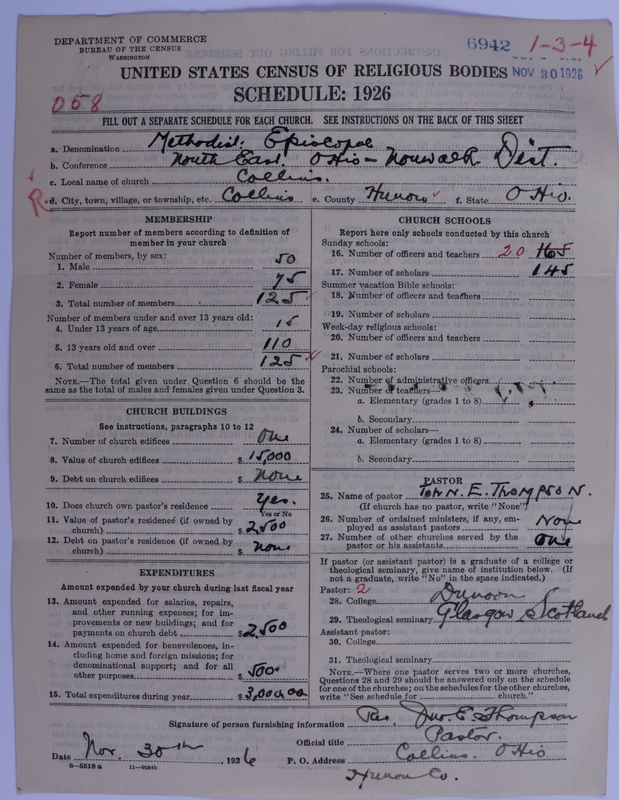 DEPARTMENT OF COMMERCE
BUREAU OF THE CENSUS
WASHINGTON
6942 1-3-4
NOV 30 1926
UNITED STATES CENSUS OF RELIGIOUS BODIES
SCHEDULE: 1926
058
FILL OUT A SEPARATE SCHEDULE FOR EACH CHURCH. SEE INSTRUCTIONS ON THE BACK OF THIS SHEET
a. Denomination Methodist Episcopal
b. Conference North East. Ohio - Norwalk Dist.
c. Local name of church Collins.
R d. City, town, village, or township, etc. Collins e. County Huron f. State Ohio.
MEMBERSHIP
Report number of members according to definition of
member in your church
Number of members, by sex:
1. Male 50
2. Female 75
3. Total number of members 125
Number of members under and over 13 years old:
4. Under 13 years of age 15
5. 13 years old and over 110
6. Total number of members 125
NOTE.—The total given under Question 6 should be the
same as the total of males and females given under Question 3.
CHURCH BUILDINGS
See instructions, paragraphs 10 to 12
7. Number of church edifices One
8. Value of church edifices $ 15,000
9. Debt on church edifices $ None
10. Does church own pastor's residence Yes.
Yes or No
11. Value of pastor's residence (if owned by
church) $ 2,500
12. Debt on pastor's residence (if owned by
church) $ None
EXPENDITURES
Amount expended by your church during last fiscal year
13. Amount expended for salaries, repairs,
and other running expenses; for im-
provements or new buildings; and for
payments on church debt $ 2,500
14. Amount expended for benevolences, in-
cluding home and foreign missions; for
denominational support; and for all
other purposes $ 500
15. Total expenditures during year $ 3,000.00
CHURCH SCHOOLS
Report here only schools conducted by this church
Sunday schools:
16. Number of officers and teachers 20 165
17. Number of scholars 145
Summer vacation Bible schools:
18. Number of officers and teachers
19. Number of scholars
Week-day religious schools:
20. Number of officers and teachers
21. Number of scholars
Parochial schools:
22. Number of administrative officers
23. Number of teachers—
a. Elementary (grades 1 to 8)
b. Secondary
24. Number of scholars—
a. Elementary (grades 1 to 8)
b. Secondary
PASTOR
25. Name of pastor John. E. Thompson.
(If church has no pastor, write "None")
26. Number of ordained ministers, if any, em-
ployed as assistant pastors Non
27. Number of other churches served by the
pastor or his assistants one
If pastor (or assistant pastor) is a graduate of a college or
theological seminary, give name of institution below. (If
not a graduate, write "No" in the space indicated.)
Pastor: 2
28. College Dunoon
29. Theological seminary Glasgow, Scotland
Assistant pastor:
30. College
31. Theological seminary
NOTE.—Where one pastor serves two or more churches,
Questions 28 and 29 should be answered only on the schedule
for one of the churches; on the schedules for the other churches,
write "See schedule for church."
Signature of person furnishing information Jno. E. Thompson
Official title Pastor.
Date Nov. 30th, 1926 P. O. Address Collins. Ohio
Huron Co.
8—5518 a